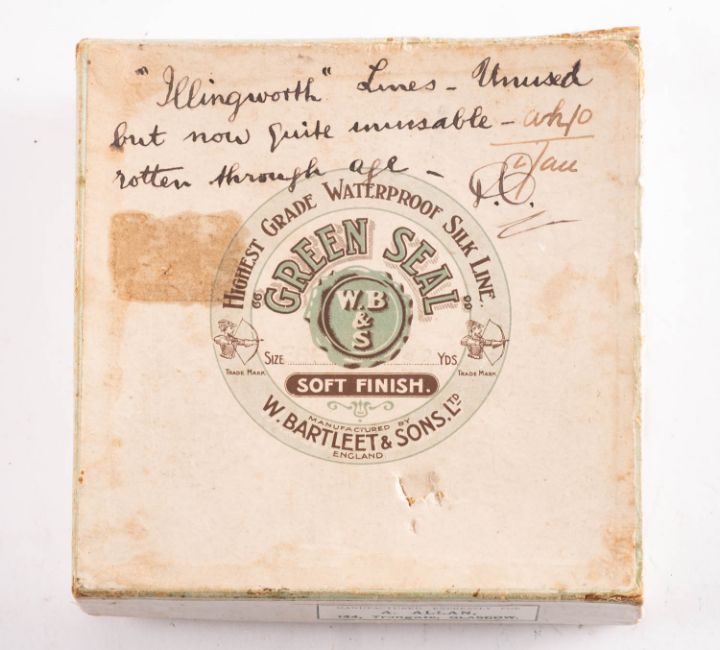 "Illingworth" Lines - Unused
but now quite unusable -
rotten through age -
HIGHEST GRADE WATERPROOF SILK LINE.
"GREEN SEAL"
W.B
&
S
SIZE YDS
TRADE MARK TRADE MARK
SOFT FINISH.
MANUFACTURED BY
W. BARTLEET & SONS. LTD
ENGLAND.
MANUFACTURED EXPRESSLY FOR
A. ALLAN,
144, Trongate, GLASGOW.